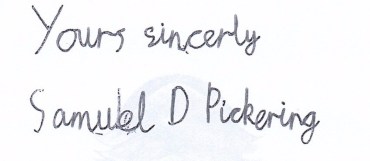 Yours sincerly
Samuel D Pickering